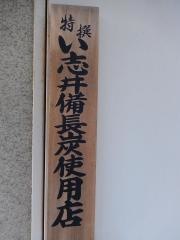 特撰
い志井備長炭使用店